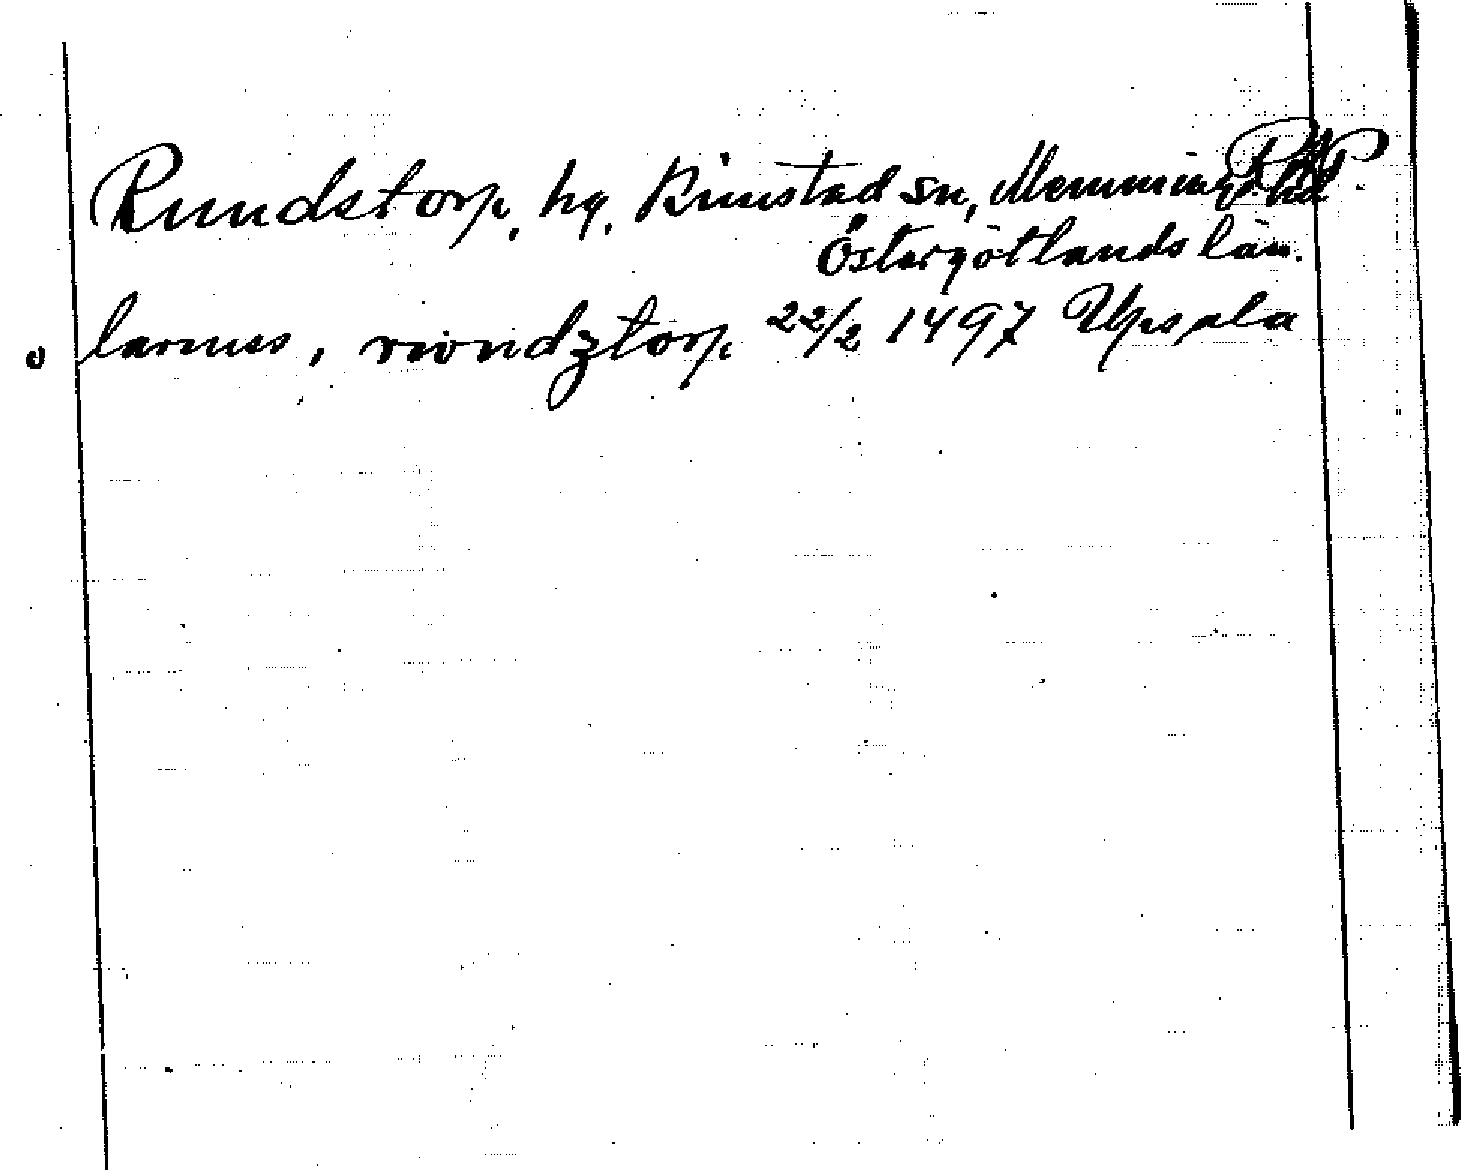 Rundstorp, hg, Kimstad sn, Memmings hd
Östergötlands län.
larmes, rwndztorp 22/2 1497 Upsala